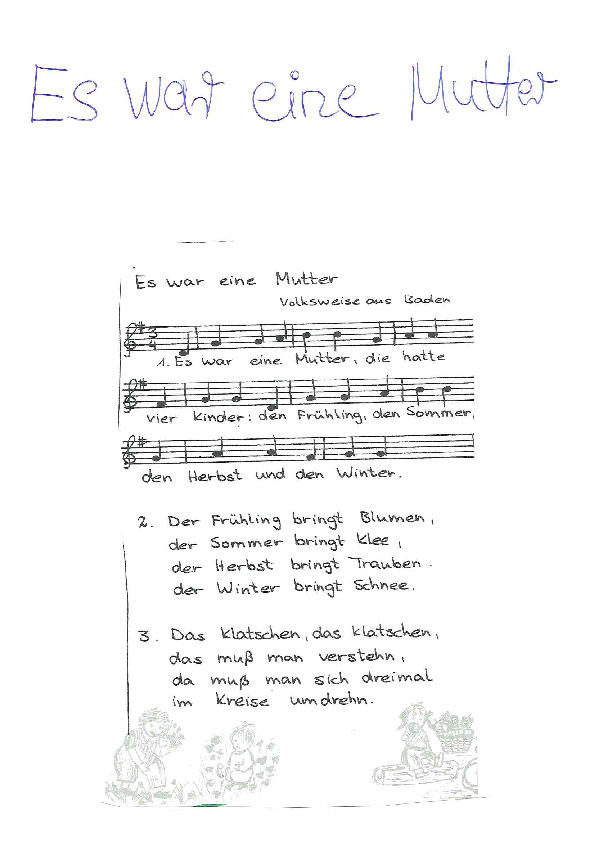 Es war eine Mutter
Es war eine Mutter
Volksweise aus Baden
3
4
1. Es war eine Mutter, die hatte
vier Kinder: den Frühling, den Sommer,
den Herbst und den Winter.
2. Der Frühling bringt Blumen,
der Sommer bringt Klee,
der Herbst bringt Trauben.
der Winter bringt Schnee.
3. Das Klatschen, das Klatschen,
das muß man verstehn,
da muß man sich dreimal
im Kreise umdrehn.